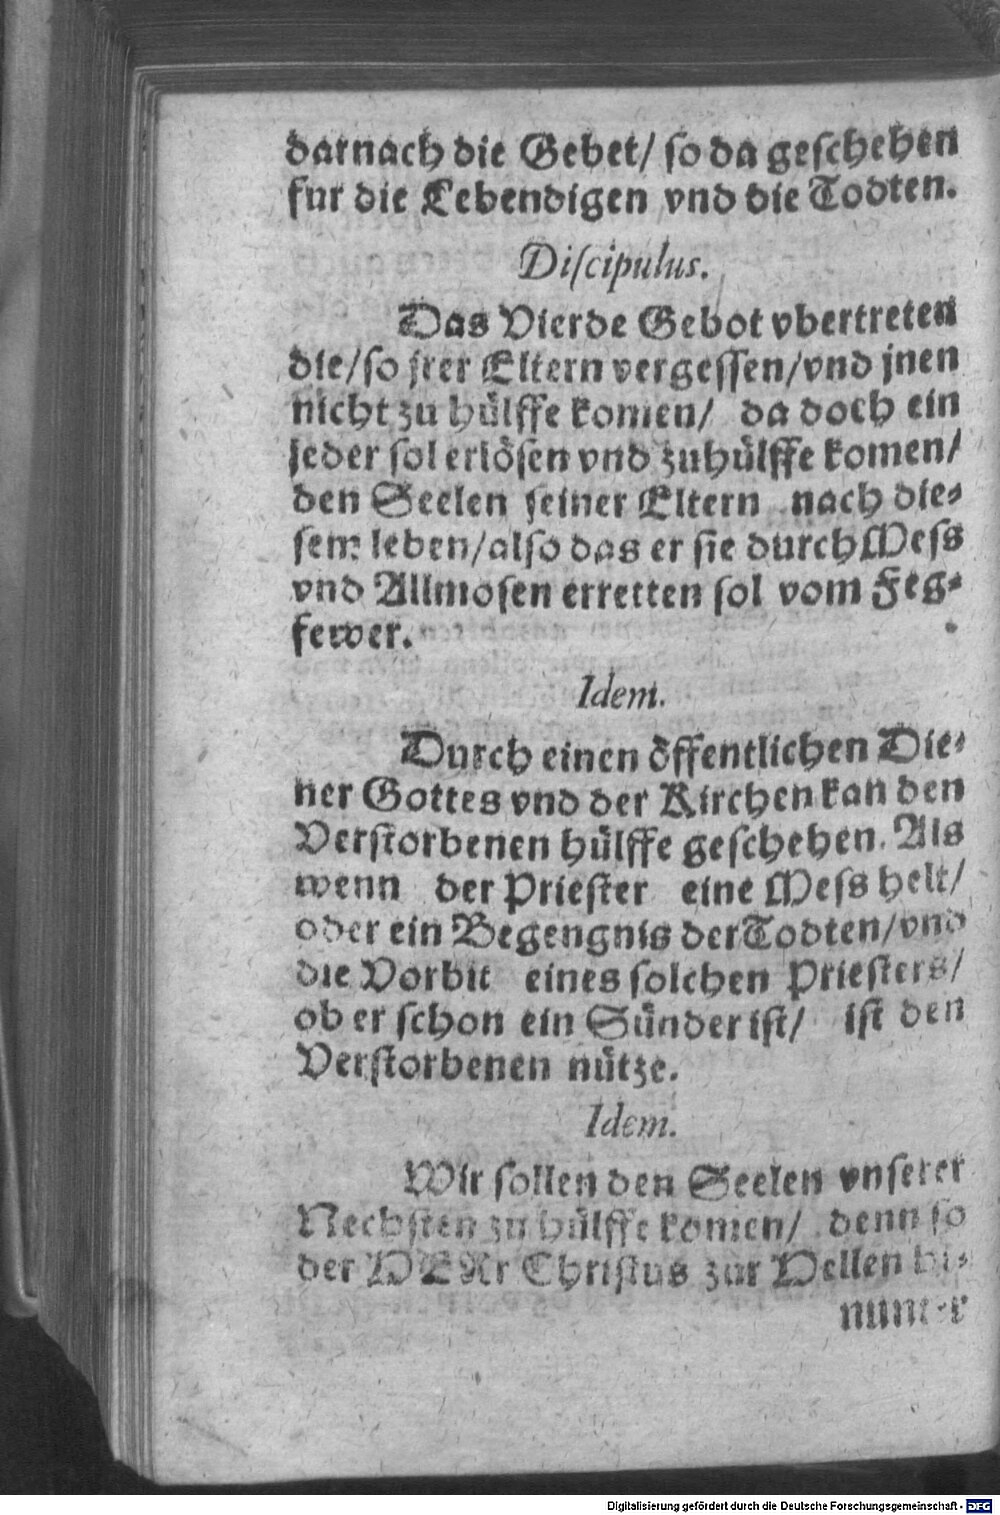 darnach die Gebet/ so da geschehen
fur die Lebendigen vnd die Todten.
Discipulus.
Das Vierde Gebot vbertreten
die/so jrer Eltern vergessen/vnd jnen
nicht zu hülffe komen/ da doch ein
jeder sol erlösen vnd zuhülffe komen/
den Seelen seiner Eltern nach die-
sem leben/also das er sie durch Mess
vnd Allmosen erretten sol vom Feg-
fewer.
Idem.
Durch einen öffentlichen Die-
ner Gottes vnd der Kirchen kan den
Verstorbenen hülffe geschehen. Als
wenn der Priester eine Mess helt/
oder ein Begengnis der Todten/vnd
die Vorbit eines solchen Priesters/
ob er schon ein Sünder ist/ ist den
Verstorbenen nütze.
Idem.
Wir sollen den Seelen vnserer
Nechsten zu hülffe komen/ denn so
der HERr Christus zur Hellen hi-
nunter
Digitalisierung gefördert durch die Deutsche Forschungsgemeinschaft - DFG